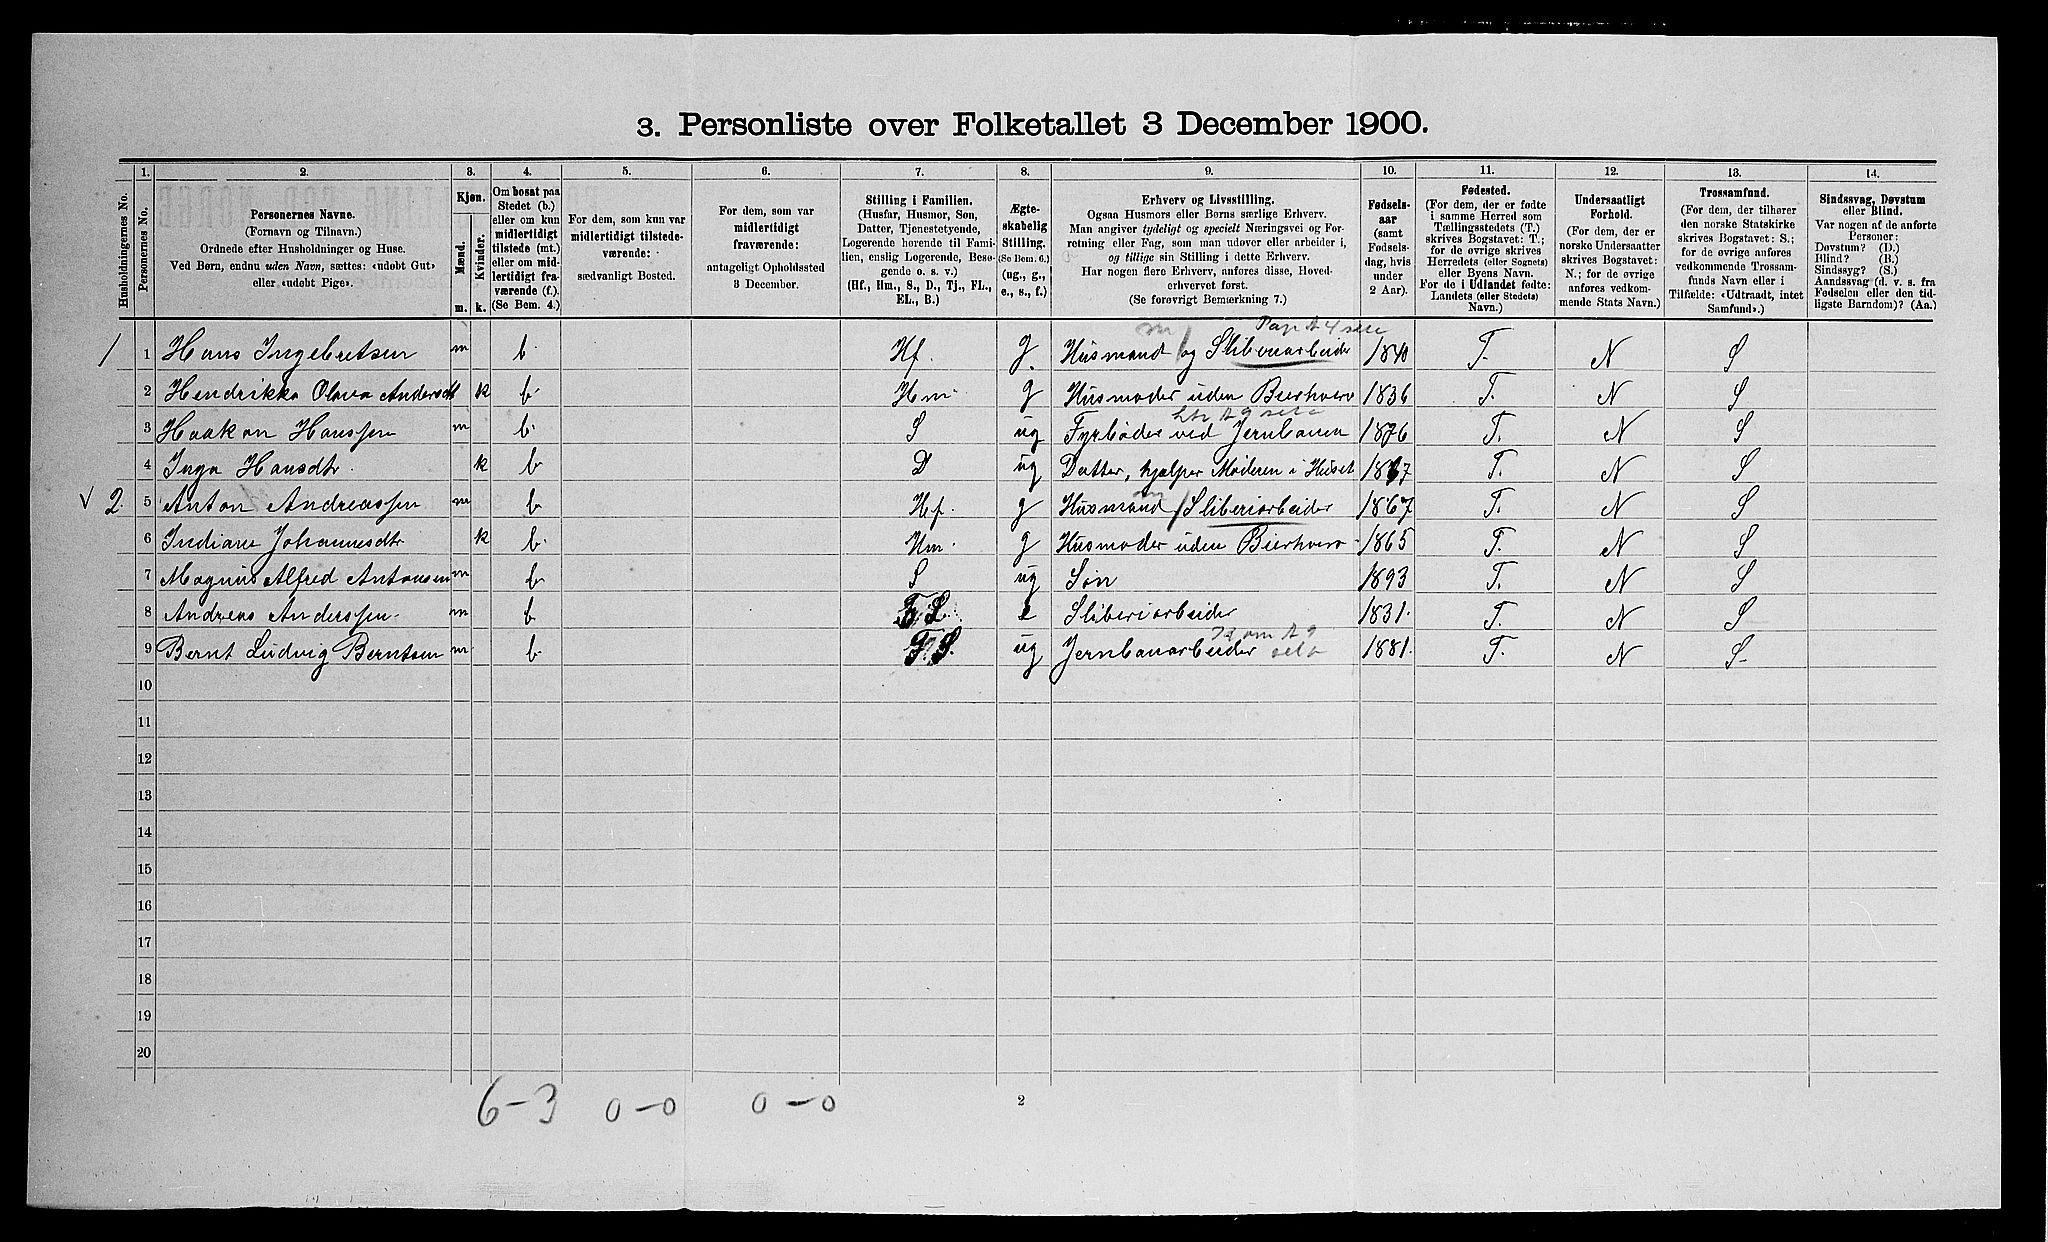 3. Personliste over Folketallet 3 December 1900.
Husholdningernes No.
1.
Personernes No.
2.
Personernes Navne.
(Fornavn og Tilnavn.)
Ordnede efter Husholdninger og Huse.
Ved Børn, endnu uden Navn, sættes: «udøbt Gut»
eller «udøbt Pige».
3.
Kjøn.
Mænd.
Kvinder.
m. k.
4.
Om bosat paa
Stedet (b.)
eller om kun
midlertidigt
tilstede (mt.)
eller om mid-
lertidigt fra-
værende (f.).
(Se Bem. 4.)
5.
For dem, som kun var
midlertidigt tilstede-
værende:
sædvanligt Bosted.
6.
For dem, som var
midlertidigt
fraværende:
antageligt Opholdssted
3 December.
7.
Stilling i Familien.
(Husfar, Husmor, Søn,
Datter, Tjenestetyende,
Logerende hørende til Fami-
lien, enslig Logerende, Besø-
gende o. s. v.)
(Hf., Hm., S., D., Tj., FL.,
EL., B.)
8.
Ægte-
skabelig
Stilling.
(Se Bem. 6.)
(ug., g.,
e., s., f.)
9.
Erhverv og Livsstilling.
Ogsaa Husmors eller Børns særlige Erhverv.
Man angiver tydeligt og specielt Næringsvei og For-
retning eller Fag, som man udøver eller arbeider i,
og tillige sin Stilling i dette Erhverv.
Har nogen flere Erhverv, anføres disse, Hoved-
erhvervet først.
(Se forøvrigt Bemærkning 7.)
10.
Fødsels-
aar
(samt
Fødsels-
dag, hvis
under
2 Aar).
11.
Fødested.
(For dem, der er fødte
i samme Herred som
Tællingsstedets (T.)
skrives Bogstavet: T.;
for de øvrige skrives
Herredets (eller Sognets)
eller Byens Navn.
For de i Udlandet fødte:
Landets (eller Stedets)
Navn.)
12.
Undersaatligt
Forhold.
(For dem, der er
norske Undersaatter
skrives Bogstavet:
N.; for de øvrige
anføres vedkom-
mende Stats Navn.)
13.
Trossamfund.
(For dem, der tilhører
den norske Statskirke
skrives Bogstavet: S.;
for de øvrige anføres
vedkommende Trossam-
funds Navn eller i
Tilfælde: «Udtraadt, intet
Samfund».)
14.
Sindssvag, Døvstum
eller Blind.
Var nogen af de anførte
Personer:
Døvstum? (D.)
Blind? (B.)
Sindssyg? (S.)
Aandssvag (d. v. s. fra
Fødselen eller den tid-
ligste Barndom)? (Aa.)
1 1 Hans Ingebretsen m b. Hf. g. Husmand og Sliberiarbeider 1840 T. N S
2 Hendrikke Olava Andersdt k b. Hm. g Husmoder uden Bierhverv 1836 T. N S
3 Haakon Hanssen m b. S ug Fyrbøder ved Jernbanen 1876 T. N S
4 Inga Hansdtr. k b D ug Datter, hjælper Moderen i Huset 1867 T. N S
2. 5 Anton Andreassen m b. Hf. g Husmand Sliberiarbeider 1867 T. N S
6 Indiane Johannesdtr k b. Hm. g Husmoder uden Bierhverv 1865 T. N S
7 Magnus Alfred Antonsen m b S ug Søn 1893 T. N S
8 Andreas Anderssen m b F.L. e Sliberiarbeider 1831. T. N S
9 Bernt Ludvig Berntsen m b. ug Jernbanarbeider 1881. T. N S
10
11
12
13
14
15
16
17
18
19
20
6-3 0-0 0-0
2